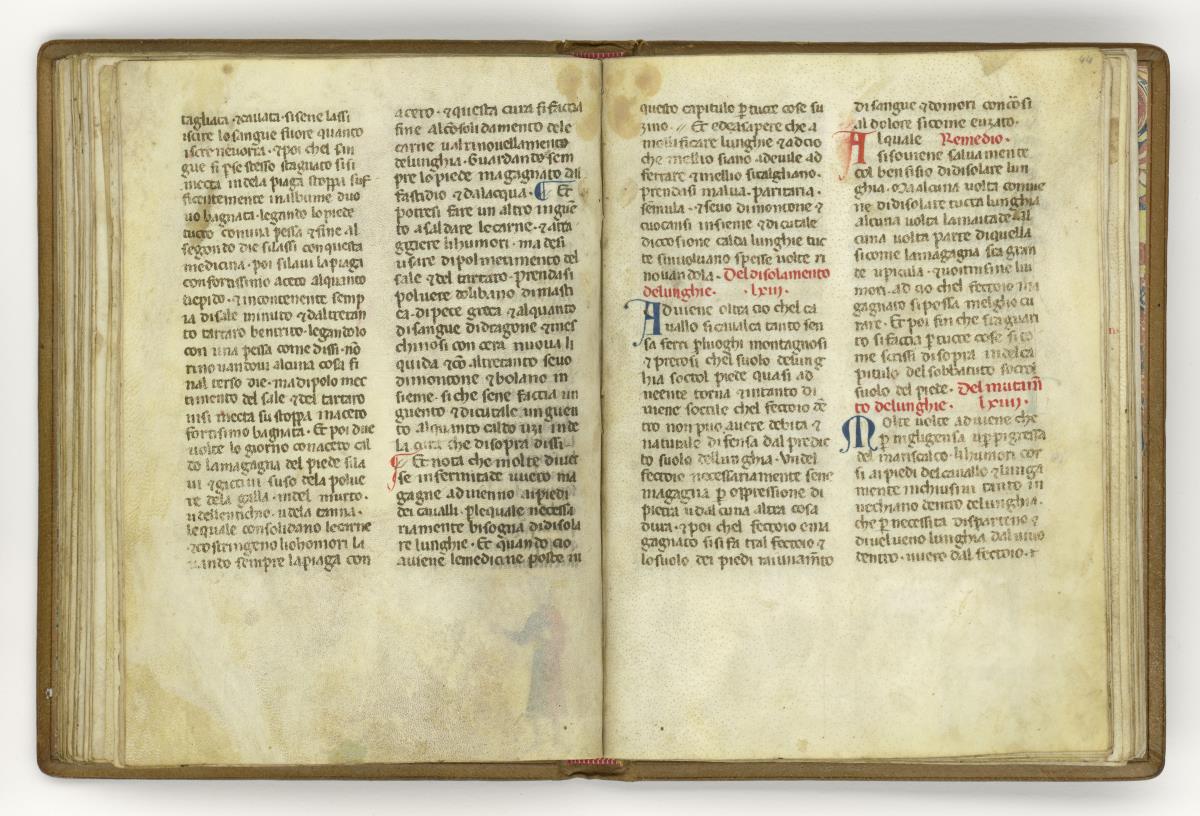 tagliata · &cauata · sisene lassi
iscire losangue fuore quanto
iscire neuorra · &poi chel san
gue si p se stesso stagnato si si
mecta indela piaga stoppa suf
ficientemente inalbume duo
uo bagnata · legando lopiede
tucto conuna pessa & fine al
segondo die silassi conquesta
medicina · poi silaui lapiaga
confortissimo aceto alquanto
tiepido · & incontenente semp
ra disale minuto & daltretan
to tartaro bentrito · legandolo
con una pessa come dissi · nõ
rimouandoui alcuna cosa fi
nal terso die · madipolo mec
timento del sale & del tartaro
uisi mecta su stoppa inaceto
fortissimo bagnata · Et poi due
uolte lo giorno conaceto cal
do lamagagna del piede sila
ui & gictiui suso dela polue
re dela galla · u del murto ·
u dellentichio · u dela tanna ·
lequale consolidano lecarne
& costringeno liohomori la
uando sempre lapiaga con
aceto · & questa cura si faccia
fine alcõsolidamento dele
carne u alrinouellamento
delunghia · Guardando sem
pre lo piede magagnato da
fastidio & dalacqua · ¶ Et
potresi fare un altro inguẽ
to a saldare lecarne · & astri
ggiere lihumori · ma desi
usare dipol mectimento del
sale & del tartaro · prendasi
poluere dolibano dimasti
ca · dipece greca · & alquanto
disangue didragone & mes
chinosi con cera nuoua li
quida & cõ altretanto seuo
dimontone & bolano in
sieme · si che sene faccia un
guento & dicutale unguen
to alquanto caldo uzi inde
la cura che disopra dissi ·
¶ Et nota che molte diuer
se infermitade uuero ma
gagne aduenno aipiedi
dei caualli · plequale necessa
riamente bisogna didisola
re lunghie · Et quando cio
auiene lemedicine poste in
questo capitulo p tucte cose su
zino · // Et edasapere che a
mollificare lunghie & adcio
che mellio siano adeuile ad
ferrare & mellio sitalghiano ·
prendasi malua · paritaria ·
semula · & seuo dimontone &
cuocansi insieme & dicutale
diccosione calda lunghie tuc
te sinuoluano spesse uolte ri
nouandola · Del disolamento
delunghie · · lxiii ·
Aduiene oltra cio chel ca
uallo si caualca tanto sen
sa ferri p luoghi montagnosi
& pretosi chel suolo delung
hia soctol piede quasi ad
neente torna & intanto di
uiene soctile chel fectoio dẽ
tro non puo auere debita &
naturale difensa dal predic
to suolo dellunghia · Undel
fectoio necessariamente sene
magagna p oppressione di
pietra u dalcuna altra cosa
dura · & poi chel fectoio e ma
gagnato si si fa tral fectoio &
lo suolo dei piedi raunamẽto
disangue & domori con cõsi
al dolore sicome enzato ·
Alquale Remedio ·
si souiene saluamente
col bensisio didisolare lun
ghia · Ma alcuna uolti conue
ne didisolare tucta lunghia
alcuna uolta lamaitade al
cuna uolta parte diquella
sicome lamagagna sia gran
te u picula · & uoitinsine liu
mori · ad cio chel fectoio ma
gagnato si possa melghio cu
rare · Et poi fin che sia guari
to si faccia p tucte cose si co
me scrissi disopra indel ca
pitulo del sobbatuto soctol
suolo del piede · Del mutam̃
to delunghie · lxiiii ·
Molte uolte aduiene che
p nigligensa u p pigressa
del mariscalco · lihumori cor
si aipiedi del cauallo & lunga
mente inchiusini tanto in
uechiano dentro delunghia ·
che p necessita disparteno &
diuelueno lunghia dal uiuo
dentro · uuero dal fectoio · &
44